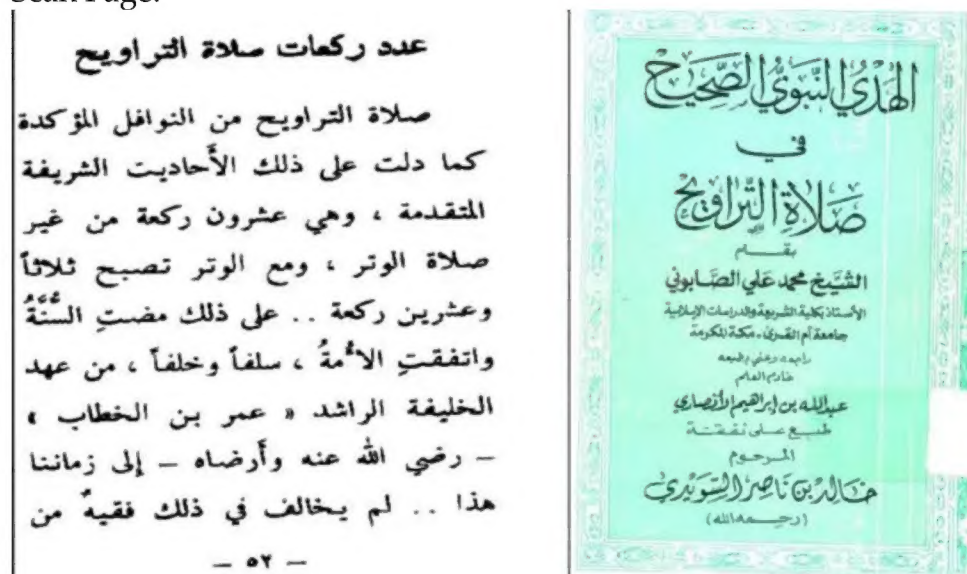 Scan Page:
عدد ركعات صلاة التراويح
صلاة التراويح من النوافل المؤكدة
كما دلت على ذلك الأَحاديث الشريفة
المتقدمة ، وهي عشرون ركعة من غير
صلاة الوتر ، ومع الوتر تصبح ثلاثاً
وعشرين ركعة .. على ذلك مضتِ السُّنَّةُ
واتفقتِ الأُمةُ ، سلفاً وخلفاً ، من عهد
الخليفة الراشد « عمر بن الخطاب »
– رضي الله عنه وأَرضاه – إلى زماننا
هذا .. لم يخالف في ذلك فقيهٌ من
– ٥٢ –
الهَدْيُ النَّبَوِيُّ الصَّحِيحُ
في
صَلَاةِ التَّرَاوِيحِ
بقلم
الشَّيخ محمد علي الصَّابوني
الأستاذ بكلية الشريعة والدراسات الإسلامية
جامعة أم القرى - مكة المكرمة
راجعه وعني بطبعه
خادم العلم
عبدالله بن إبراهيم الأنصاري
طبع على نفقة
المرحوم
خالد بن ناصر السويدي
(رحمه الله)